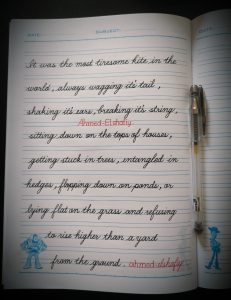 DATE: SUBJECT: DATE:
It was the most tiresome kite in the
world, always wagging it's tail,
shaking it's ears, breaking it's string,
Ahmed-Elshafiy
sitting down on the tops of houses,
getting stuck in trees, entangled in
hedges, flopping down on ponds, or
lying flat on the grass and refusing
to rise higher than a yard
from the ground. ahmed elshafiy